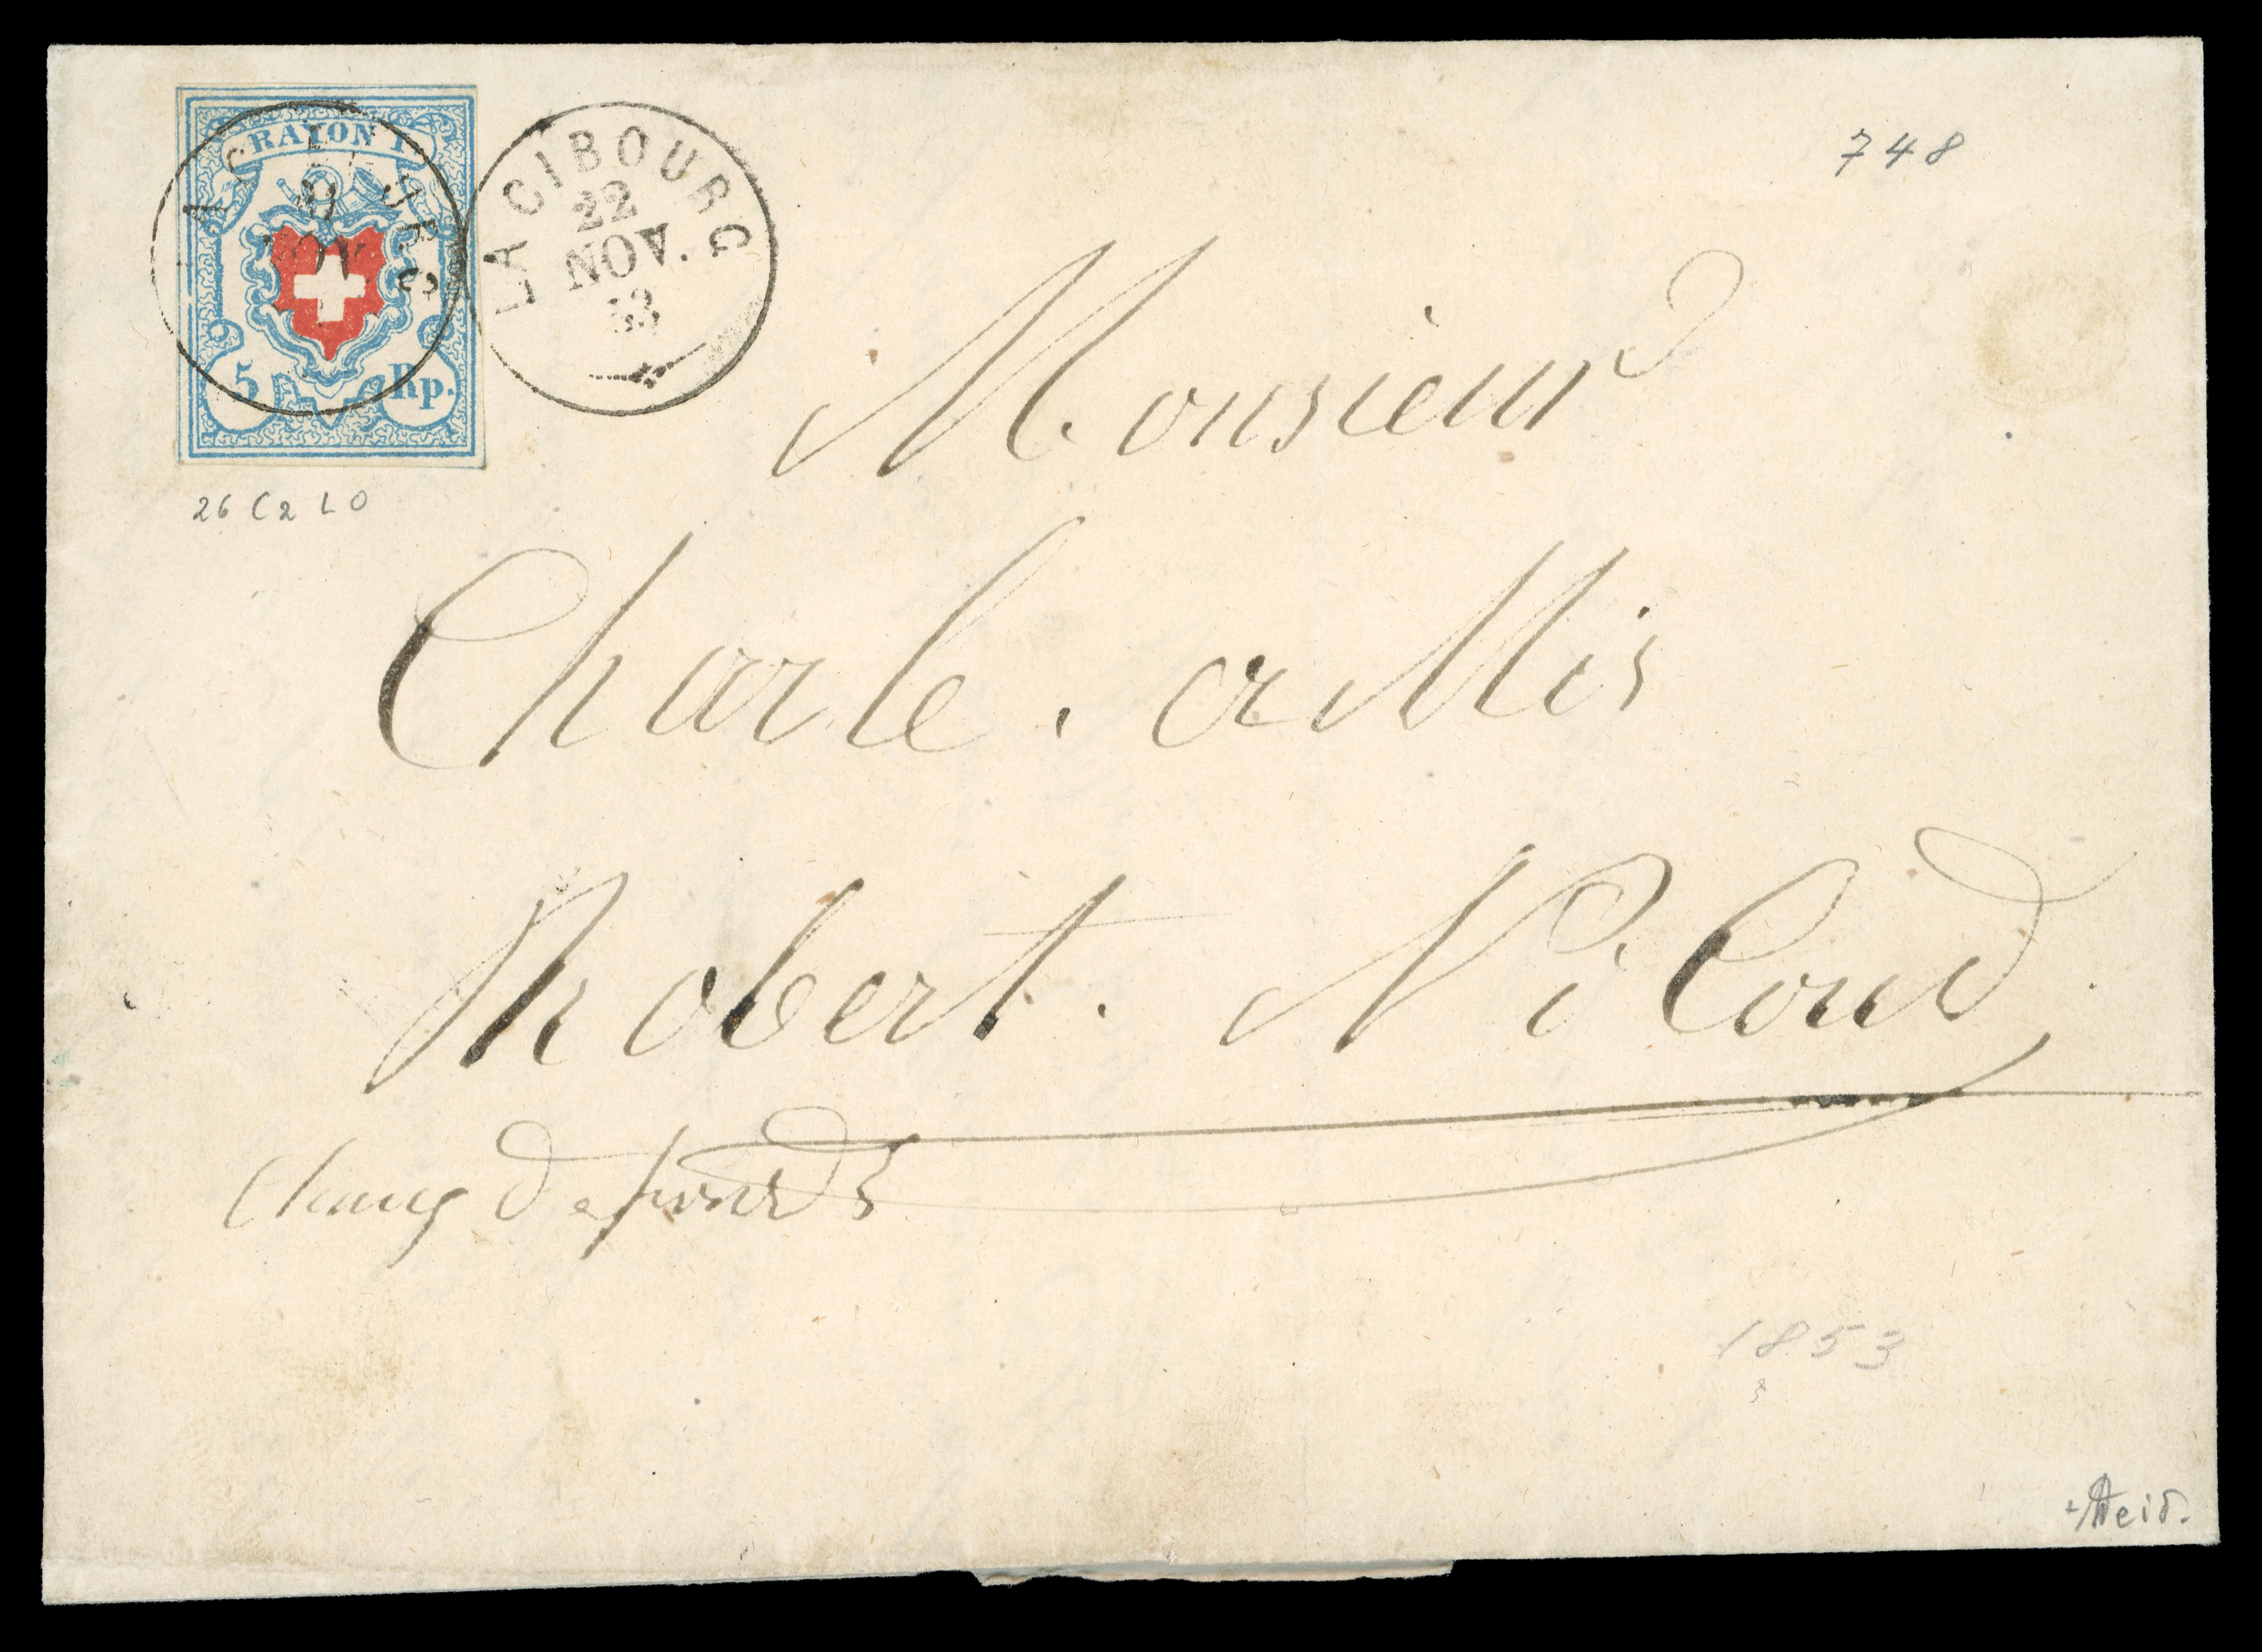 RAYON I
5 Rp.
LA CIBOURG
22
NOV.
53
748
26 C2 LO
Monsieur
Charle. aMis
Robert. NiCoud
Chaug defonds
1853